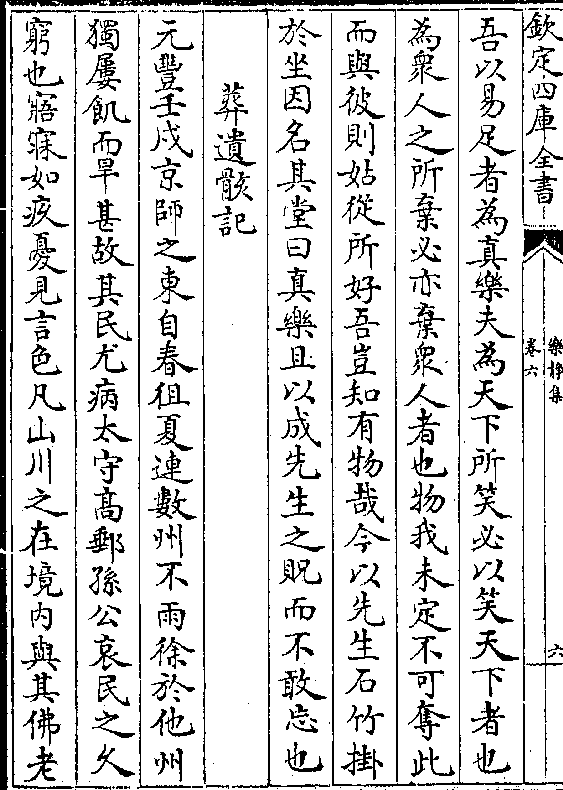 欽定四庫全書
樂静集
卷六
六
吾以易足者為真樂夫為天下所笑必以笑天下者也
為衆人之所棄必亦棄衆人者也物我未定不可奪此
而與彼則姑從所好吾豈知有物哉今以先生石竹掛
於坐因名其堂曰真樂且以成先生之貺而不敢忘也
葬遺骸記
元豐壬戌京師之東自春徂夏連數州不雨徐於他州
獨屢飢而旱甚故其民尤病太守髙郵孫公哀民之乆
窮也寤寐如疚憂見言色凡山川之在境内與其佛老